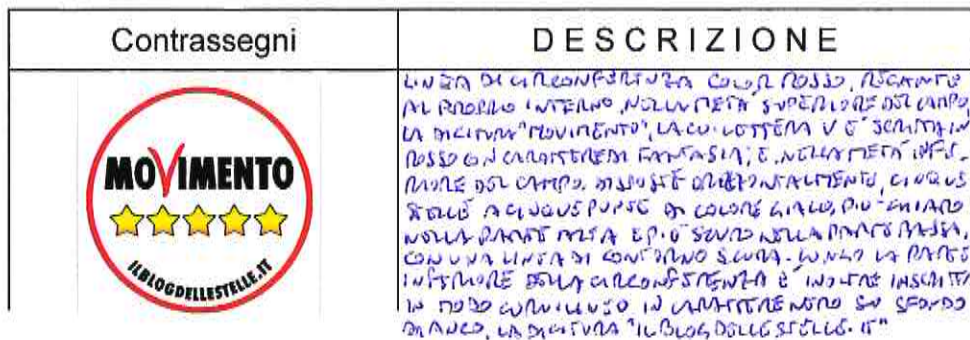 Contrassegni
DESCRIZIONE
MOVIMENTO
ILBLOGDELLESTELLE.IT
LINEA DI CIRCONFERENZA COLOR ROSSO, RECANTE
AL PROPRIO INTERNO, NELLA METÀ SUPERIORE DEL CAMPO,
LA DICITURA "MOVIMENTO", LA CUI LETTERA V È SCRITTA IN
ROSSO CON CARATTERE DI FANTASIA; E, NELLA METÀ INFE-
RIORE DEL CAMPO, DISPOSTE ORIZZONTALMENTE, CINQUE
STELLE A CINQUE PUNTE DI COLORE GIALLO, PIÙ CHIARO
NELLA PARTE ALTA E PIÙ SCURO NELLA PARTE BASSA,
CON UNA LINEA DI CONTORNO SCURA. LUNGO LA PARTE
INFERIORE DELLA CIRCONFERENZA È INOLTRE INSCRITTA
IN MODO CURVILINEO IN CARATTERE NERO SU SFONDO
BIANCO, LA DICITURA "ILBLOGDELLESTELLE.IT"